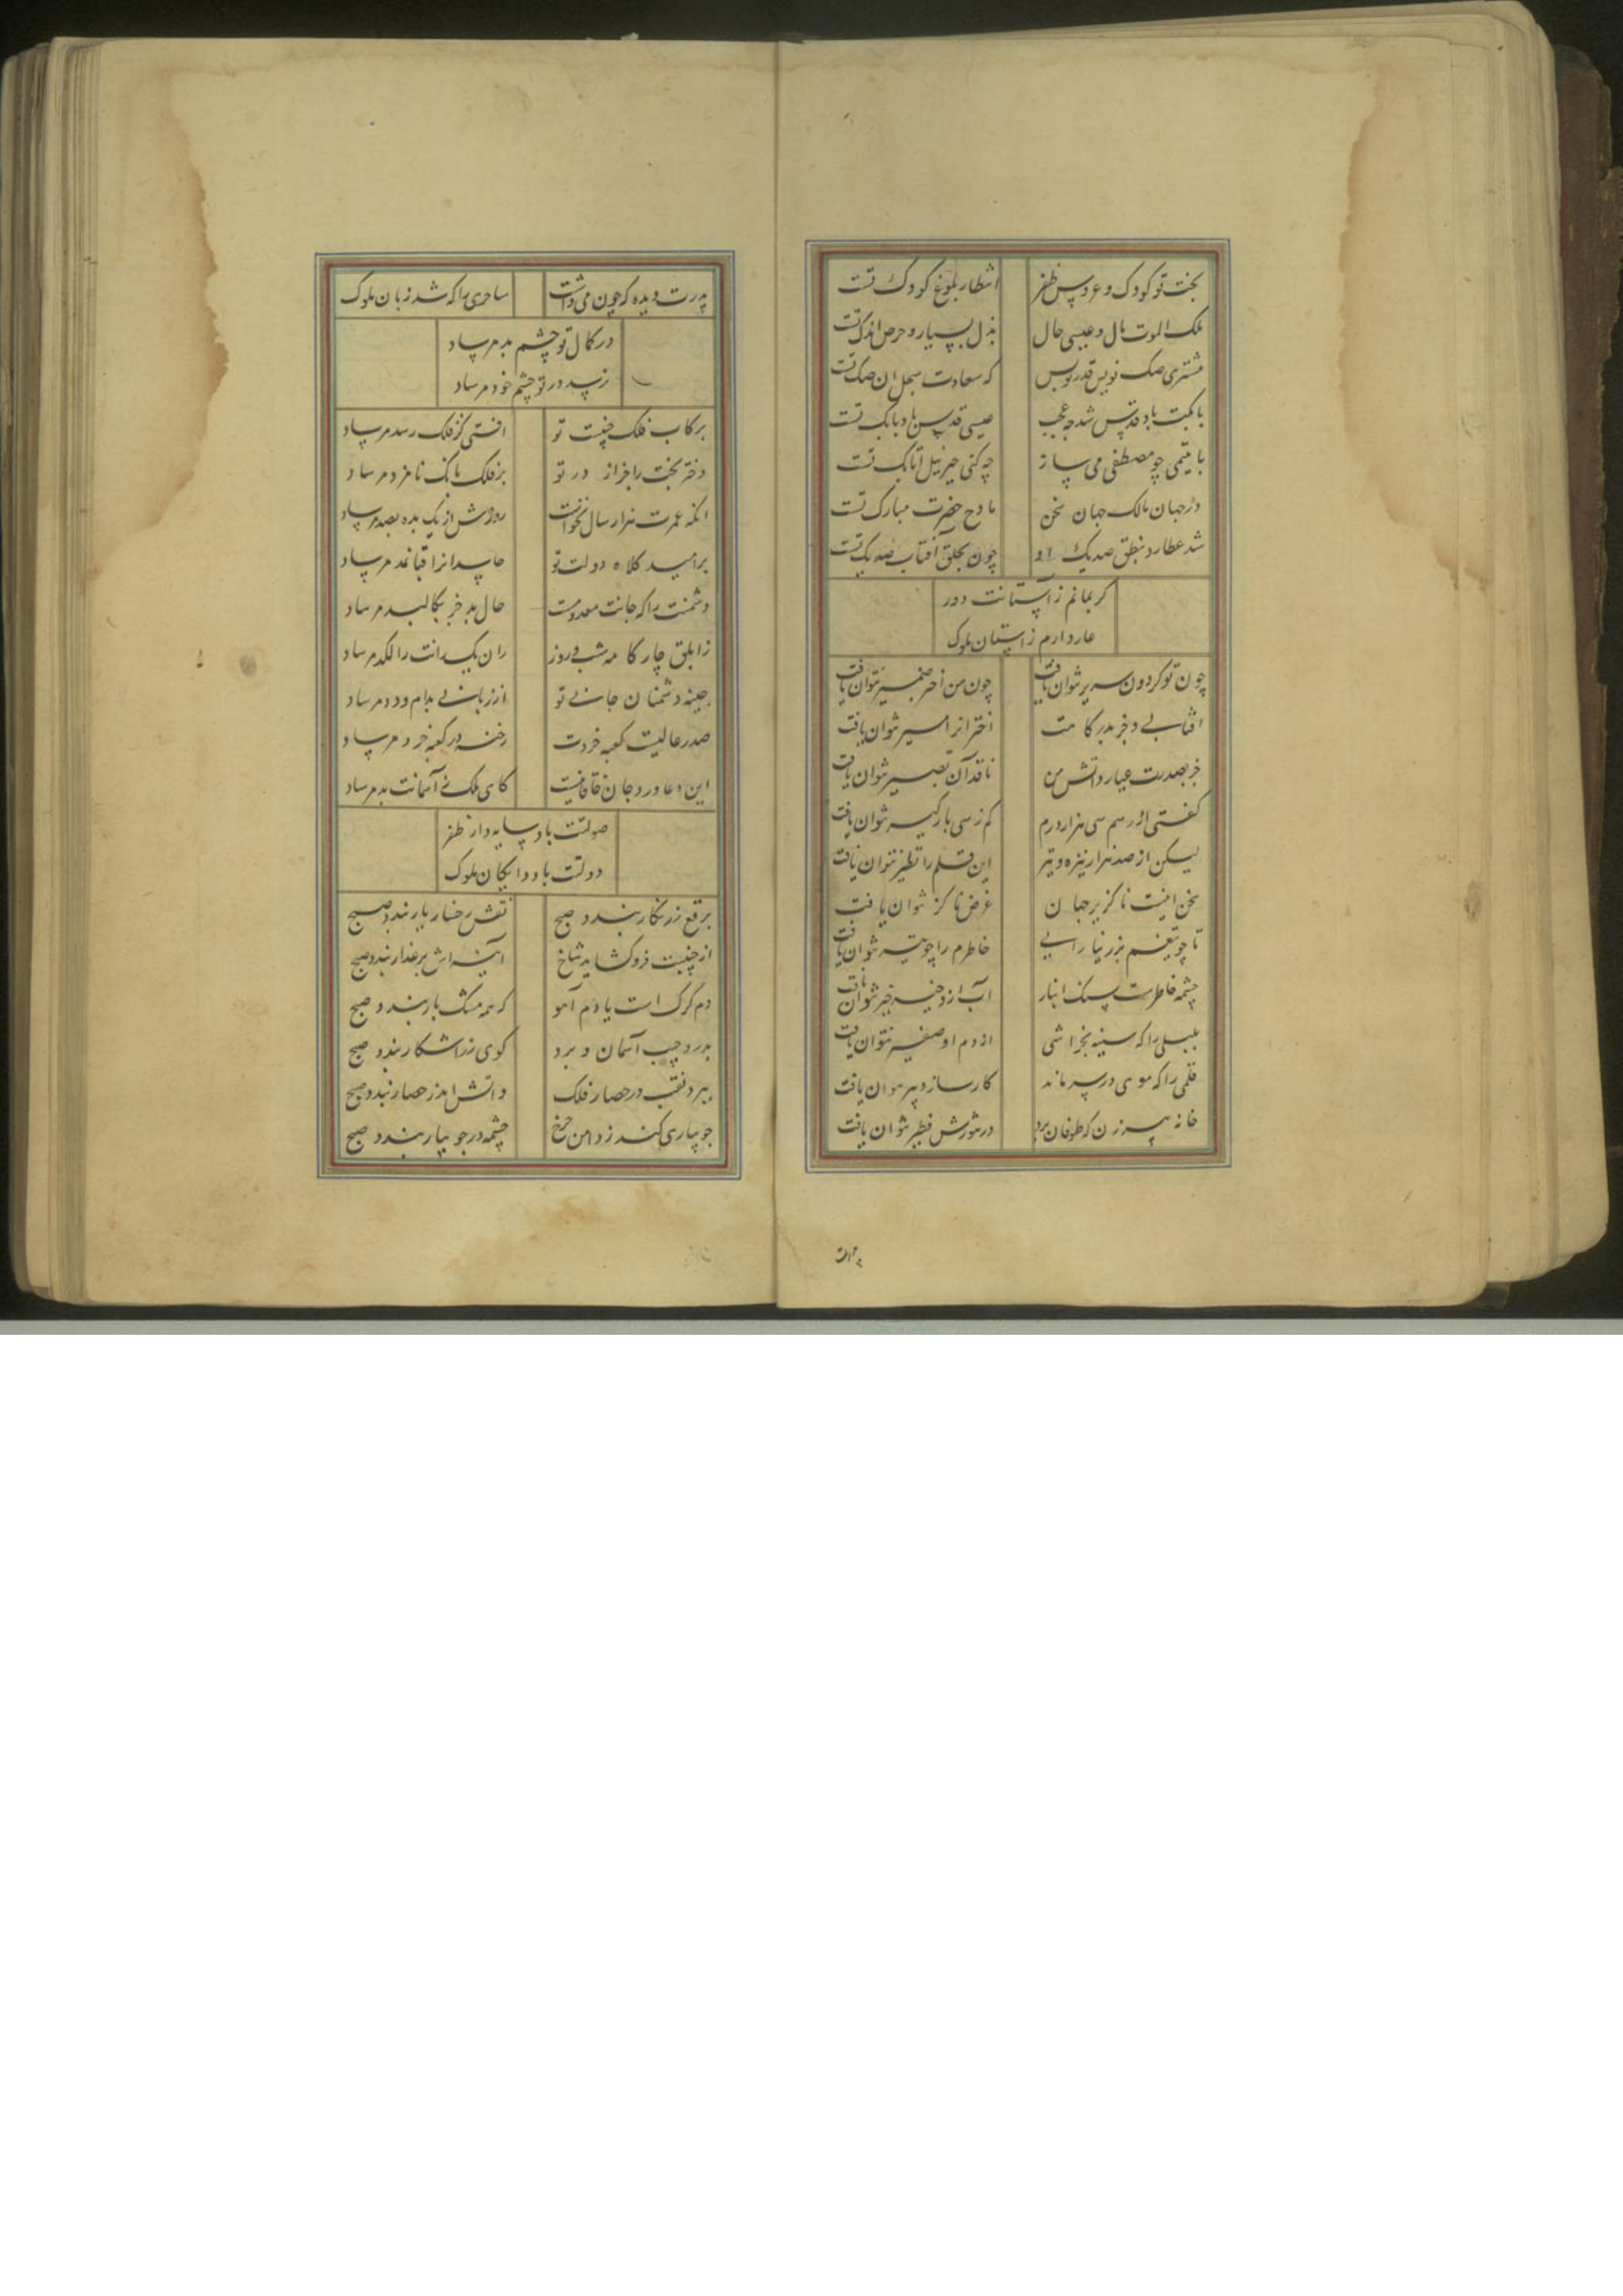 بخت تو کودک و عروس ظفر
انتظار بلوغ کودک تست
ملک الموت مال و عیسی حال
بذل بسیار و حرص اندک تست
مشتری صک نویس قدر تو بس
که سعادت سجل ان صک تست
با کبت باد قدس شد چه عجب
عیسی قدس باد بابک تست
با یتیمی چو مصطفی می ساز
چه کنی جبرئیل اتابک تست
در جهان مالک جهان سخن
مادح حضرت مبارک تست
شد عطارد بنطق صد یک او
چون بخلق آفتاب صد یک تست
کر بمانم ز آستانت دور
عار دارم ز آستان ملوک
چون تو کردون سریر نتوان یافت
چون من اختر ضمیر نتوان یافت
افتابی و جز بدرکاهت
اخترانرا سیر نتوان یافت
جز بصدرت عیار دانش من
ناقد آن بصیر نتوان یافت
کفتی از رسم سی هزار درم
کم ز سی بارکیر نتوان یافت
لیکن از صد هزار نیزه و تیر
این قلم را نظیر نتوان یافت
سخن اینست ناکزیر جهان
عرض ناکزیر نتوان یافت
تا چو تیغم بزر نیارایی
خاطرم را چو تیر نتوان یافت
چشمه خاطرست سنک انبار
آب ازو خیر خیر نتوان یافت
بلبلی را که سینه بخراشی
از دم او صفیر نتوان یافت
قلمی را که موی در سر ماند
کارساز دبیر نتوان یافت
خانه پیرزن که طوفان برد
در تنورش فطیر نتوان یافت
پدرت دیده که چون می داشت
ساحری را که شد زبان ملوک
در کمال تو چشم بد مرساد
نرسد در تو چشم خود مرساد
برکاب فلک جنیبت تو
افتی کز فلک رسد مرساد
دختر بخت را جز از در تو
بر فلک بانک نامزد مرساد
انکه عمرت هزار سال نخواست
روزش از یک بده بصد مرساد
بر امید کلاه دولت تو
حاسدانرا قبا نمد مرساد
دشمنت را که جانت معدومست
حال بد جز بکالبد مرساد
ز ابلق چار کامه شب و روز
ران یک رانت را لکد مرساد
جینه دشمنان جانی تو
از زبانی بدام و دد مرساد
صدر عالیت کعبه خردت
رخنه در کعبه خرد مرساد
این دعا ورد جان خاقانیست
کای ملک ز آسمانت بد مرساد
صولتت باد سایه دار ظفر
دولتت باد دایکان ملوک
برقع زرنکار بندد صبح
نقش رخسار یار بندد صبح
از جنیبت فرو کشاید شاخ
آینه اش بر عذار بندد صبح
دم کرک است یا دم آهو
که همه مشک بار بندد صبح
بدرد جیب آسمان و برد
کوی زر آشکار بندد صبح
ببرد نقب در حصار فلک
و اتش اندر حصار بندد صبح
جویباری کند ز دامن چرخ
چشمه در جویبار بندد صبح
پدرت